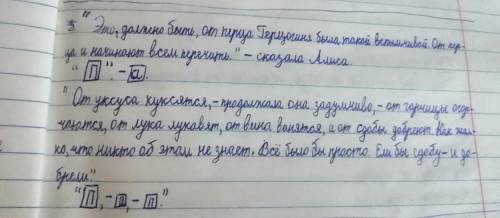 3. "Это, должно быть, от перца Герцогиня была такой вспыльчивой. От пер-
ца и начинают всем перечить." – сказала Алиса.
"П". – а.
"От уксуса куксятся, – продолжала она задумчиво, – от горчицы огор-
чаются, от лука лукавят, от вина винятся, а от сдобы добреют. Как жал-
ко, что никто об этом не знает. Всё было бы просто. Ели бы сдобу – и до-
брели"
"П, – а, – п."